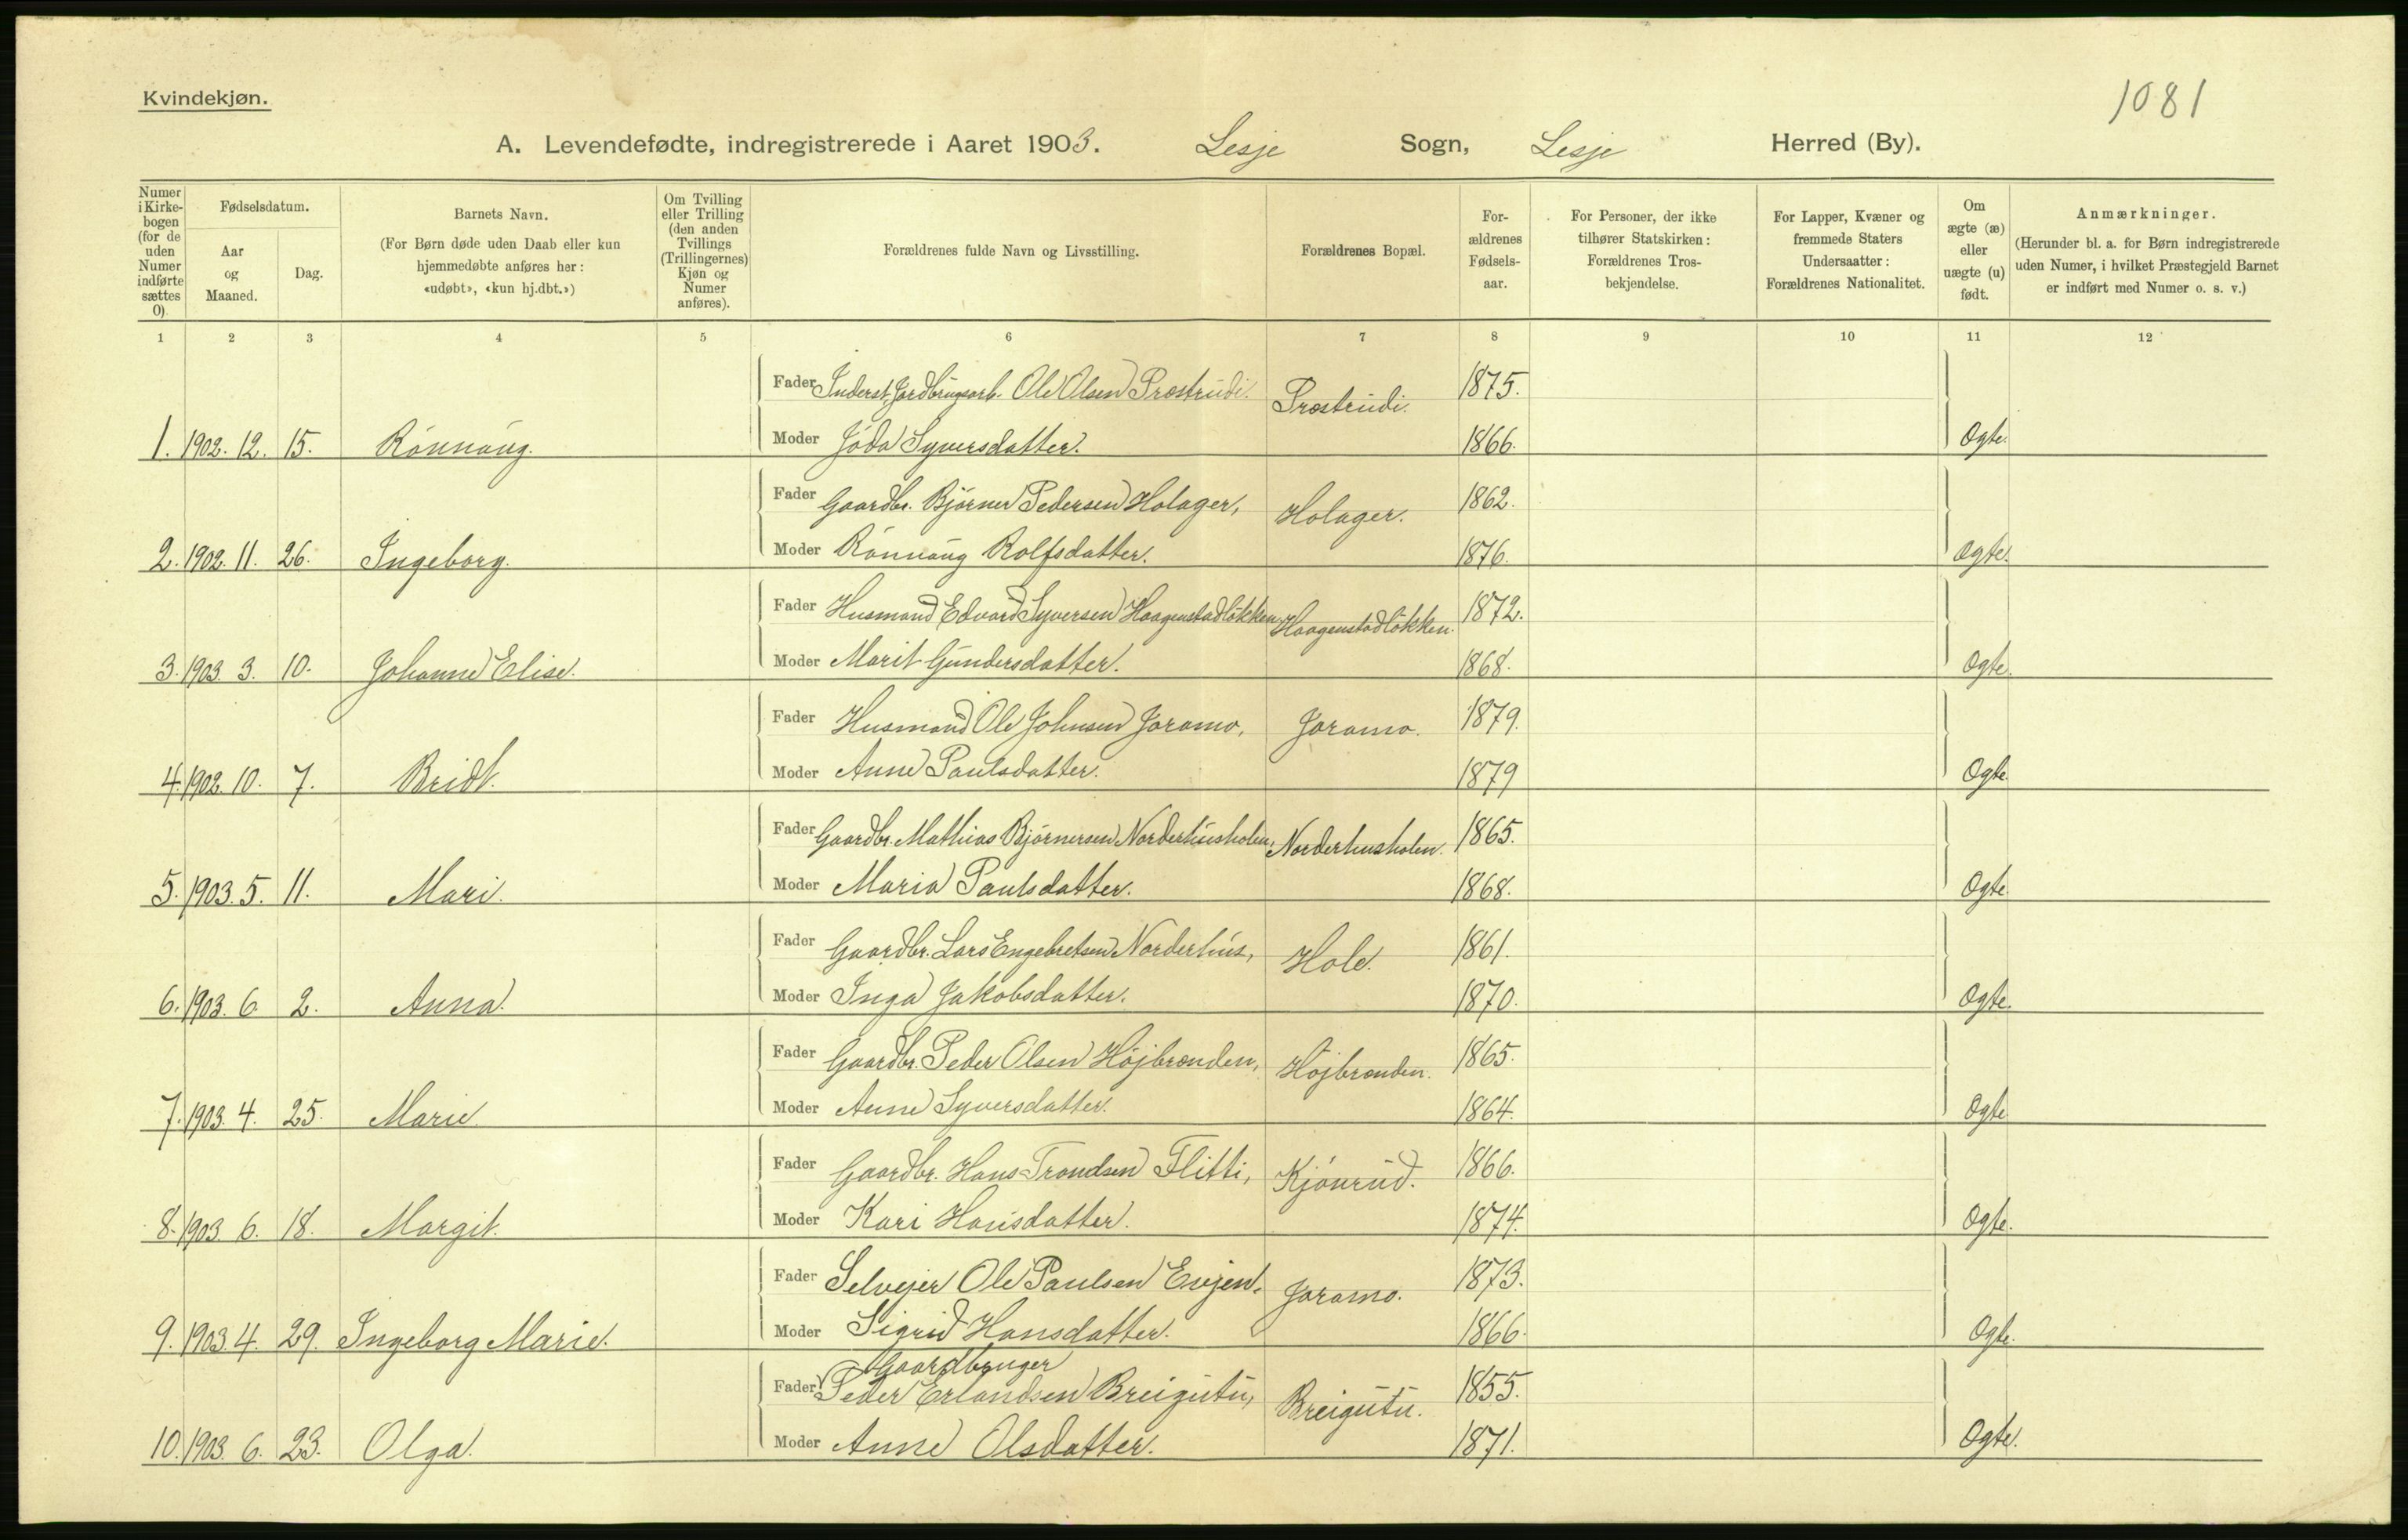 Kvindekjøn.
1081
A. Levendefødte, indregistrerede i Aaret 1903. Lesje Sogn, Lesje Herred (By).
Numer i Kirke-bogen (for de uden Numer indførte sættes 0)
Fødselsdatum.
Aar og Maaned.
Dag.
Barnets Navn.
(For Børn døde uden Daab eller kun hjemmedøbte anføres her: «udøbt», «kun hj.dbt.»)
Om Tvilling eller Trilling (den anden Tvillings (Trillingernes) Kjøn og Numer anføres).
Forældrenes fulde Navn og Livsstilling.
Forældrenes Bopæl.
For-ældrenes Fødsels-aar.
For Personer, der ikke tilhører Statskirken: Forældrenes Tros-bekjendelse.
For Lapper, Kvæner og fremmede Staters Undersaatter: Forældrenes Nationalitet.
Om ægte (æ) eller uægte (u) født.
Anmærkninger.
(Herunder bl. a. for Børn indregistrerede uden Numer, i hvilket Præstegjeld Barnet er indført med Numer o. s. v.)
1 2 3 4 5 6 7 8 9 10 11 12
Fader Inderst, Jordbrugsarb. Ole Olsen Prostrudi. Prostrudi. 1875.
1. 1902. 12. 15. Rønnaug. Moder Jóda Syversdatter. 1866. Ægte.
Fader Gaardbr. Bjørner Pedersen Holager, Holager. 1862.
2. 1902. 11. 26. Ingeborg. Moder Rønnaug Rolfsdatter. 1876. Ægte.
Fader Husmand Edvard Syversen Haagenstadløkken, Haagenstadløkken. 1872.
3. 1903. 3. 10. Johanne Elise. Moder Marit Gundersdatter. 1868. Ægte.
Fader Husmand Ole Johnsen Joramo, Joramo. 1879.
4. 1902. 10. 7. Bridt. Moder Anne Paulsdatter. 1879 Ægte.
Fader Gaardbr. Mathias Bjørnersen Norderhusholen, Norderhusholen. 1865.
5. 1903. 5. 11. Mari. Moder Maria Paulsdatter. 1868. Ægte.
Fader Gaardbr. Lars Engebretsen Norderhus, Hole. 1861.
6. 1903. 6. 2. Anna. Moder Inga Jakobsdatter. 1870. Ægte.
Fader Gaardbr. Peder Olsen Højbrænden, Højbrænden. 1865.
7. 1903. 4. 25. Marie. Moder Anne Syversdatter. 1864. Ægte
Fader Gaardbr. Hans Trondsen Flitti, Kjønrud. 1866.
8. 1903. 6. 18. Margit. Moder Kari Hansdatter. 1874. Ægte.
Fader Selvejer Ole Paulsen Enjen, Joramo. 1873.
9. 1903. 4. 29. Ingeborg Marie. Moder Sigrid Hansdatter. 1866. Ægte.
Gaardbruger
Fader Peder Erlandsen Breigutu, Breigutu. 1855.
10. 1903. 6. 23. Olga. Moder Anne Olsdatter. 1871. Ægte.